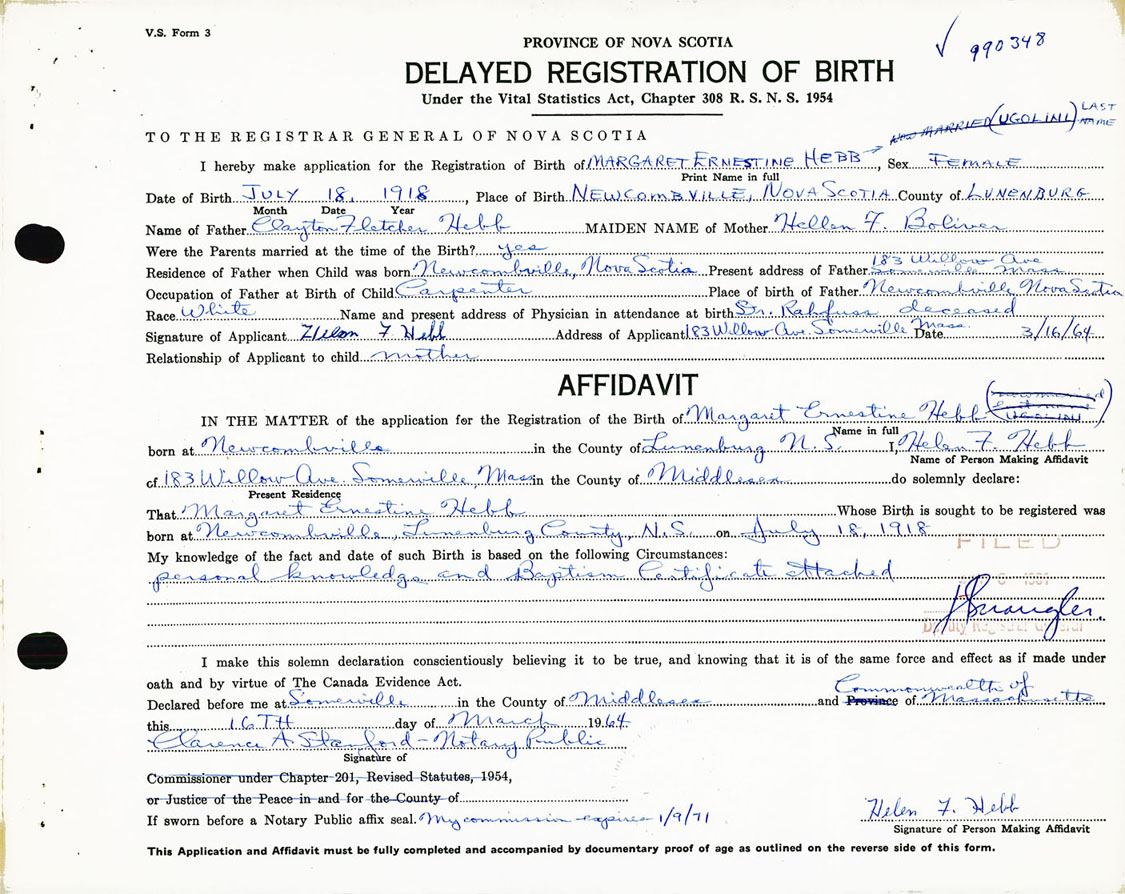 V.S. Form 3
990348
PROVINCE OF NOVA SCOTIA
DELAYED REGISTRATION OF BIRTH
Under the Vital Statistics Act, Chapter 308 R. S. N. S. 1954
MARRIED (UGOLINI) LAST NAME
TO THE REGISTRAR GENERAL OF NOVA SCOTIA
I hereby make application for the Registration of Birth of MARGARET ERNESTINE HEBB, Sex FEMALE
Print Name in full
Date of Birth JULY 18, 1918, Place of Birth NEWCOMBVILLE, NOVA SCOTIA County of LUNENBURG
Month Date Year
Name of Father Clayton Fletcher Hebb MAIDEN NAME of Mother Hellen F. Boliver
Were the Parents married at the time of the Birth? yes
183 Willow Ave
Residence of Father when Child was born Newcombville, Nova Scotia Present address of Father Somerville Mass
Occupation of Father at Birth of Child Carpenter Place of birth of Father Newcombville Nova Scotia
Race White Name and present address of Physician in attendance at birth Dr. Rahfuss deceased
Signature of Applicant Helen F Hebb Address of Applicant 183 Willow Ave. Somerville Mass. Date 3/16/64
Relationship of Applicant to child mother
AFFIDAVIT
IN THE MATTER of the application for the Registration of the Birth of Margaret Ernestine Hebb (UGOLINI)
Name in full
born at Newcombville in the County of Lunenburg N.S. I, Helen F. Hebb
Name of Person Making Affidavit
of 183 Willow Ave. Somerville, Mass in the County of Middlesex do solemnly declare:
Present Residence
That Margaret Ernestine Hebb Whose Birth is sought to be registered was
born at Newcombville, Lunenburg County, N.S. on July 18, 1918
FILED
My knowledge of the fact and date of such Birth is based on the following Circumstances:
personal knowledge and Baptism Certificate attached
Deputy Registrar General
I make this solemn declaration conscientiously believing it to be true, and knowing that it is of the same force and effect as if made under
oath and by virtue of The Canada Evidence Act.
Commonwealth of
Declared before me at Somerville in the County of Middlesex and Province of Massachusetts
this 16TH day of March 1964
Clarence A. Stanford - Notary Public
Signature of
Commissioner under Chapter 201, Revised Statutes, 1954,
or Justice of the Peace in and for the County of
If sworn before a Notary Public affix seal. My commission expires 1/9/71
Helen F. Hebb
Signature of Person Making Affidavit
This Application and Affidavit must be fully completed and accompanied by documentary proof of age as outlined on the reverse side of this form.